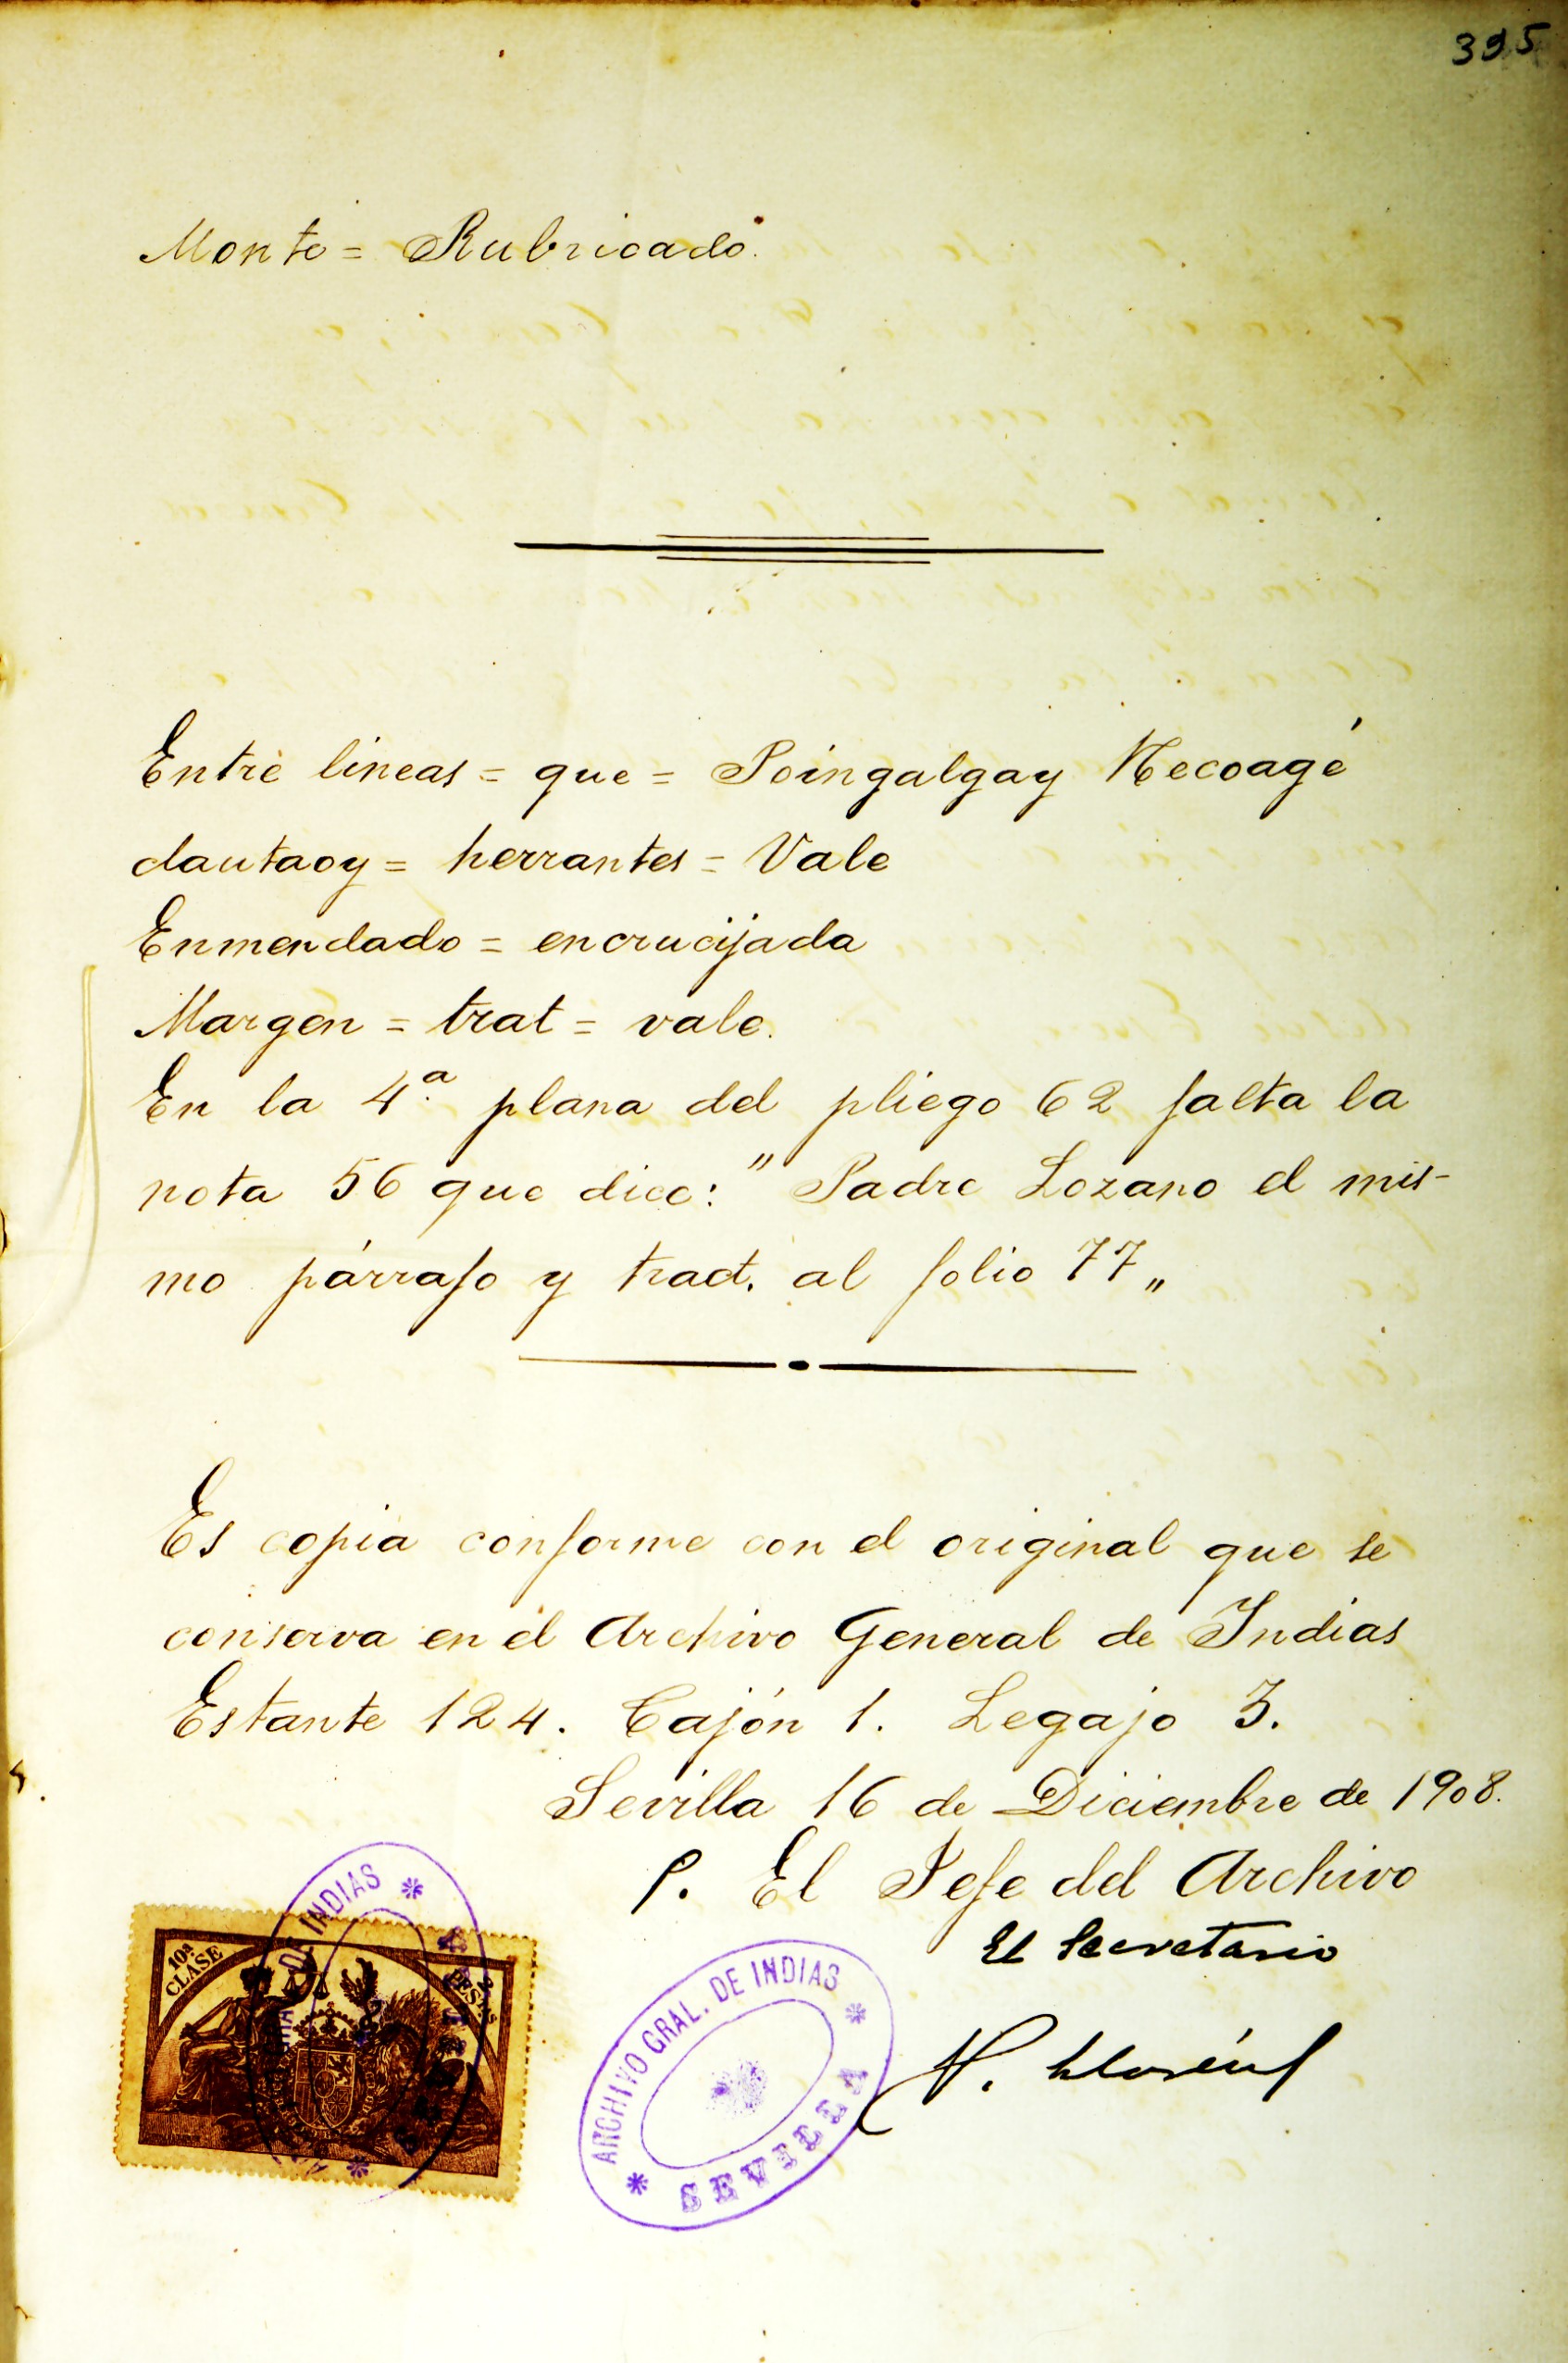 395
Monte = Rubricado.
Entre lineas = que = Poingalgay Necoagé
dautaoy = herrantes = Vale
Enmendado = encrucijada
Margen = trat = vale.
En la 4.ª plana del pliego 62 falta la
nota 56 que dice: "Padre Lozano el mis-
mo párrafo y tract. al folio 77„
Es copia conforme con el original que se
conserva en el Archivo General de Indias
Estante 124. Cajón 1. Legajo 3.
Sevilla 16 de Diciembre de 1908.
P. El Jefe del Archivo
El Secretario
10ª CLASE
2 PESAS
DE INDIAS
ARCHIVO GRAL. DE INDIAS
SEVILLA